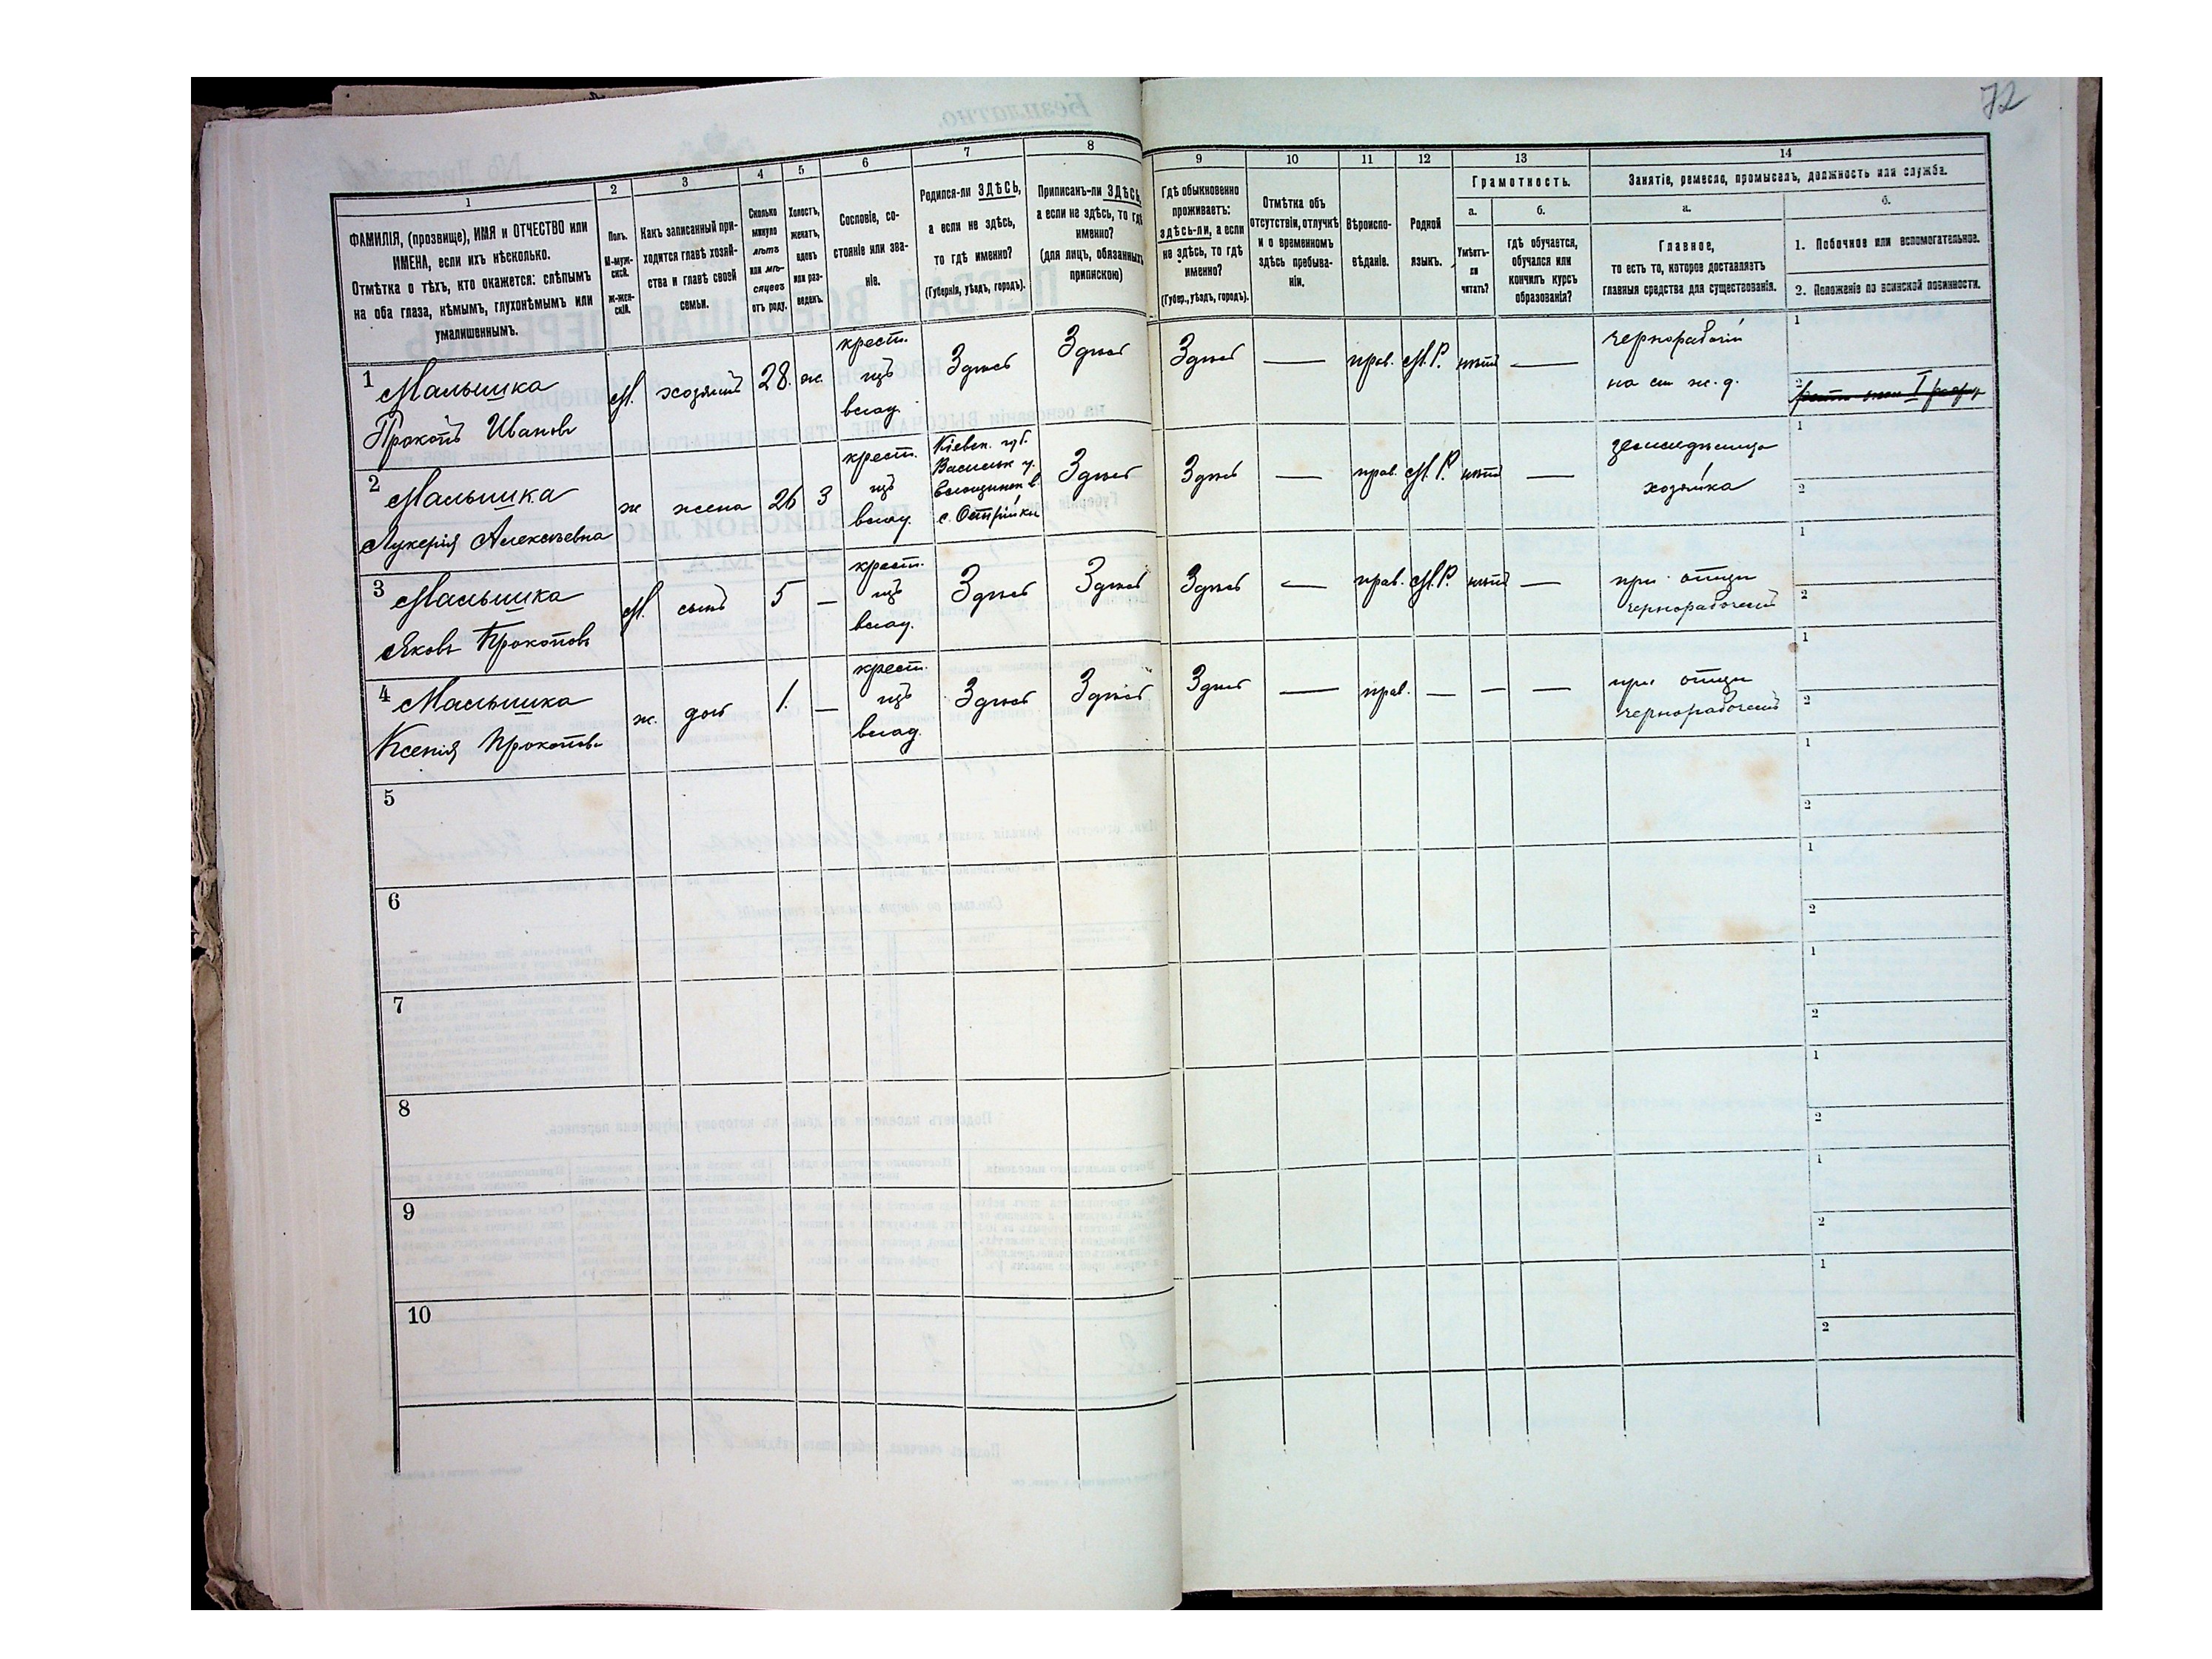 72
1 2 3 4 5 6 7 8 9 10 11 12 13 14
ФАМИЛІЯ, (прозвище), ИМЯ и ОТЧЕСТВО или
ИМЕНА, если ихъ нѣсколько.
Отмѣтка о тѣхъ, кто окажется: слѣпымъ
на оба глаза, нѣмымъ, глухонѣмымъ или
умалишеннымъ.
Полъ.
М-муж-
ской.
Ж-жен-
скій.
Какъ записанный при-
ходится главѣ хозяй-
ства и главѣ своей
семьи.
Сколько
минуло
лѣтъ
или мѣ-
сяцевъ
отъ роду.
Холостъ,
женатъ,
вдовъ
или раз-
веденъ.
Сословіе, со-
стояніе или зва-
ніе.
Родился-ли ЗДѢСЬ,
а если не здѣсь,
то гдѣ именно?
(Губернія, уѣздъ, городъ).
Приписанъ-ли ЗДѢСЬ,
а если не здѣсь, то гдѣ
именно?
(для лицъ, обязанныхъ
припискою)
Гдѣ обыкновенно
проживаетъ:
здѣсь-ли, а если
не здѣсь, то гдѣ
именно?
(Губер., уѣздъ, городъ).
Отмѣтка объ
отсутствіи, отлучкѣ
и о временномъ
здѣсь пребыва-
ніи.
Вѣроиспо-
вѣданіе.
Родной
языкъ.
Грамотность.
а. б.
Умѣетъ-
ли
читать?
гдѣ обучается,
обучался или
кончилъ курсъ
образованія?
Занятіе, ремесло, промыселъ, должность или служба.
а. б.
Главное,
то есть то, которое доставляетъ
главныя средства для существованія.
1. Побочное или вспомогательное.
2. Положеніе по воинской повинности.
1 Малышка
Прокопъ Ивановъ
М. хозяинъ 28. ж.
крест.
изъ
влад.
Здѣсь Здѣсь Здѣсь — прав. М.Р. нѣтъ —
чернорабочій
на ст. ж. д.
1
2
2 Малышка
Лукерія Алексѣевна
ж жена 26 З
крест.
изъ
влад.
Кіевск. губ.
Васильк у.
с. Острійки
Здѣсь Здѣсь — прав. М.Р. нѣтъ —
хозяйка
1
2
3 Малышка
Яковъ Прокоповъ
М. сынъ 5 —
крест.
изъ
влад.
Здѣсь Здѣсь Здѣсь — прав. М.Р. нѣтъ —
при отцѣ
чернорабочемъ
1
2
4 Малышка
Ксенія Прокопов.
ж. доч 1. —
крест.
изъ
влад.
Здѣсь Здѣсь Здѣсь — прав. — — —
при отцѣ
чернорабочемъ
1
2
5
1
2
6
1
2
7
1
2
8
1
2
9
1
2
10
1
2